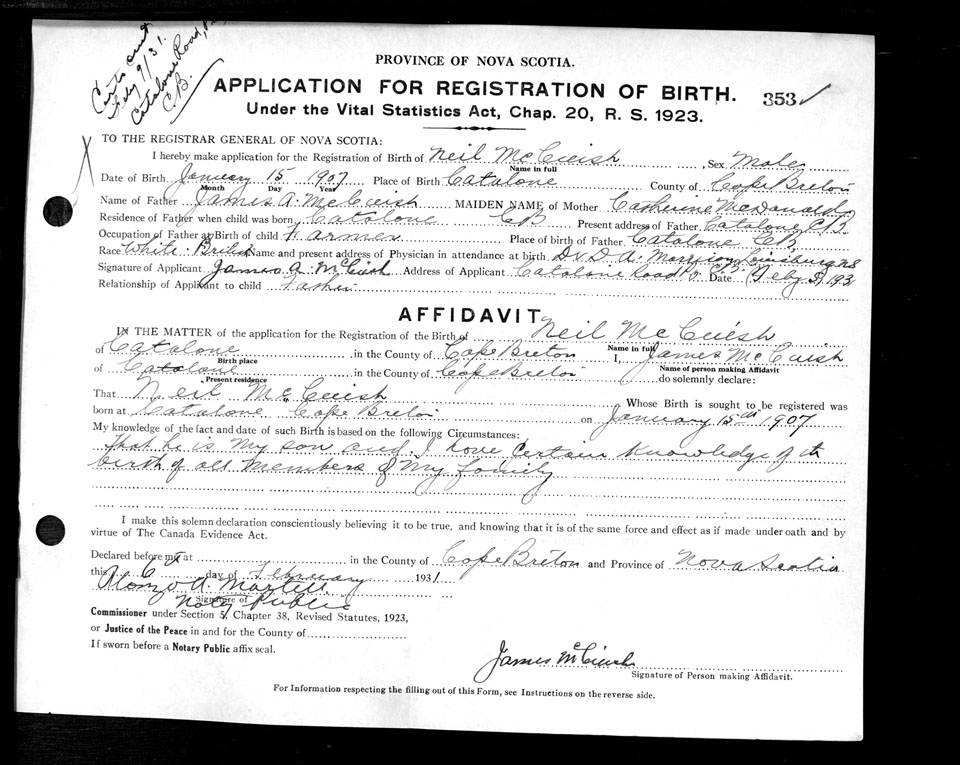 Certs sent
Feby 9/31.
Catalone Road,
C.B.
PROVINCE OF NOVA SCOTIA.
APPLICATION FOR REGISTRATION OF BIRTH. 353 ✓
Under the Vital Statistics Act, Chap. 20, R. S. 1923.
TO THE REGISTRAR GENERAL OF NOVA SCOTIA:
I hereby make application for the Registration of Birth of Neil McCuish, Sex Male
Name in full
Date of Birth January 15 1907 Place of Birth Catalone County of Cape Breton
Month Day Year
Name of Father James A. McCuish MAIDEN NAME of Mother Catherine McDonald
Residence of Father when child was born Catalone CB Present address of Father Catalone C.B.
Occupation of Father at Birth of child Farmer Place of birth of Father Catalone CB
Race White - British Name and present address of Physician in attendance at birth Dr. D. A. Morrison Louisburg NS
Signature of Applicant James A. McCuish Address of Applicant Catalone Road C.B. Date Feby 5, 1931
Relationship of Applicant to child Father
AFFIDAVIT
IN THE MATTER of the application for the Registration of the Birth of Neil McCuish
Name in full
of Catalone in the County of Cape Breton I, James McCuish
Birth place Name of person making Affidavit
of Catalone in the County of Cape Breton do solemnly declare:
Present residence
That Neil McCuish Whose Birth is sought to be registered was
born at Catalone Cape Breton on January 15th 1907
My knowledge of the fact and date of such Birth is based on the following Circumstances:
That he is my son and I have certain knowledge of the
birth of all members of my family
I make this solemn declaration conscientiously believing it to be true, and knowing that it is of the same force and effect as if made under oath and by
virtue of The Canada Evidence Act.
Declared before me at in the County of Cape Breton and Province of Nova Scotia
this 6th day of February 1931
Alonzo A. Martell
Signature of
Notary Public
Commissioner under Section 5, Chapter 38, Revised Statutes, 1923,
or Justice of the Peace in and for the County of
If sworn before a Notary Public affix seal.
James McCuish
Signature of Person making Affidavit.
For Information respecting the filling out of this Form, see Instructions on the reverse side.